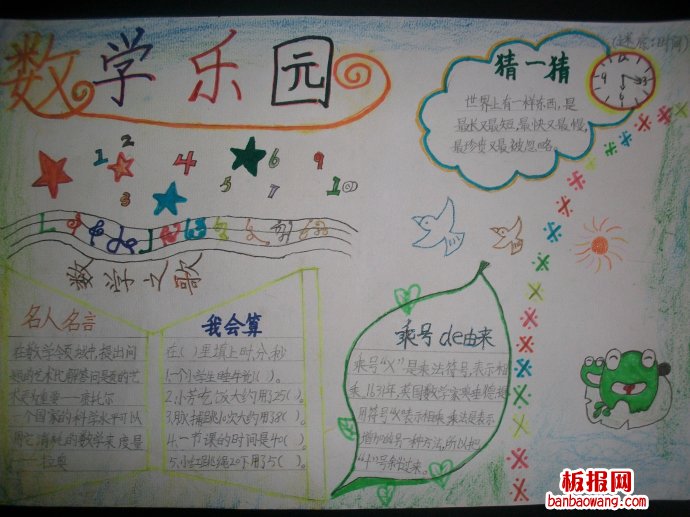 数学乐园
猜一猜
世界上有一样东西,是
最长又最短,最快又最慢,
最珍贵又最被忽略。
1 2 4 6 9
3 5 7 10
数学之歌
名人名言
在数学领域中,提出问
题的艺术比解答问题的艺
术更为重要——康托尔
一个国家的科学水平可以
用它消耗的数学来度量
——拉奥
我会算
在( )里填上时、分、秒
1.一个小学生睡午觉1( )。
2.小芳吃饭大约用25( )。
4.一节课的时间是40( )。
5.小红跳绳20下用了5( )。
乘号de由来
乘号“×”是乘法符号,表示相
乘,1631年,英国数学家奥
用符号“×”表示相乘,乘法是表示
增加的另一种方法,所以把
“+”号斜过来。
板报网
banbaowang.com